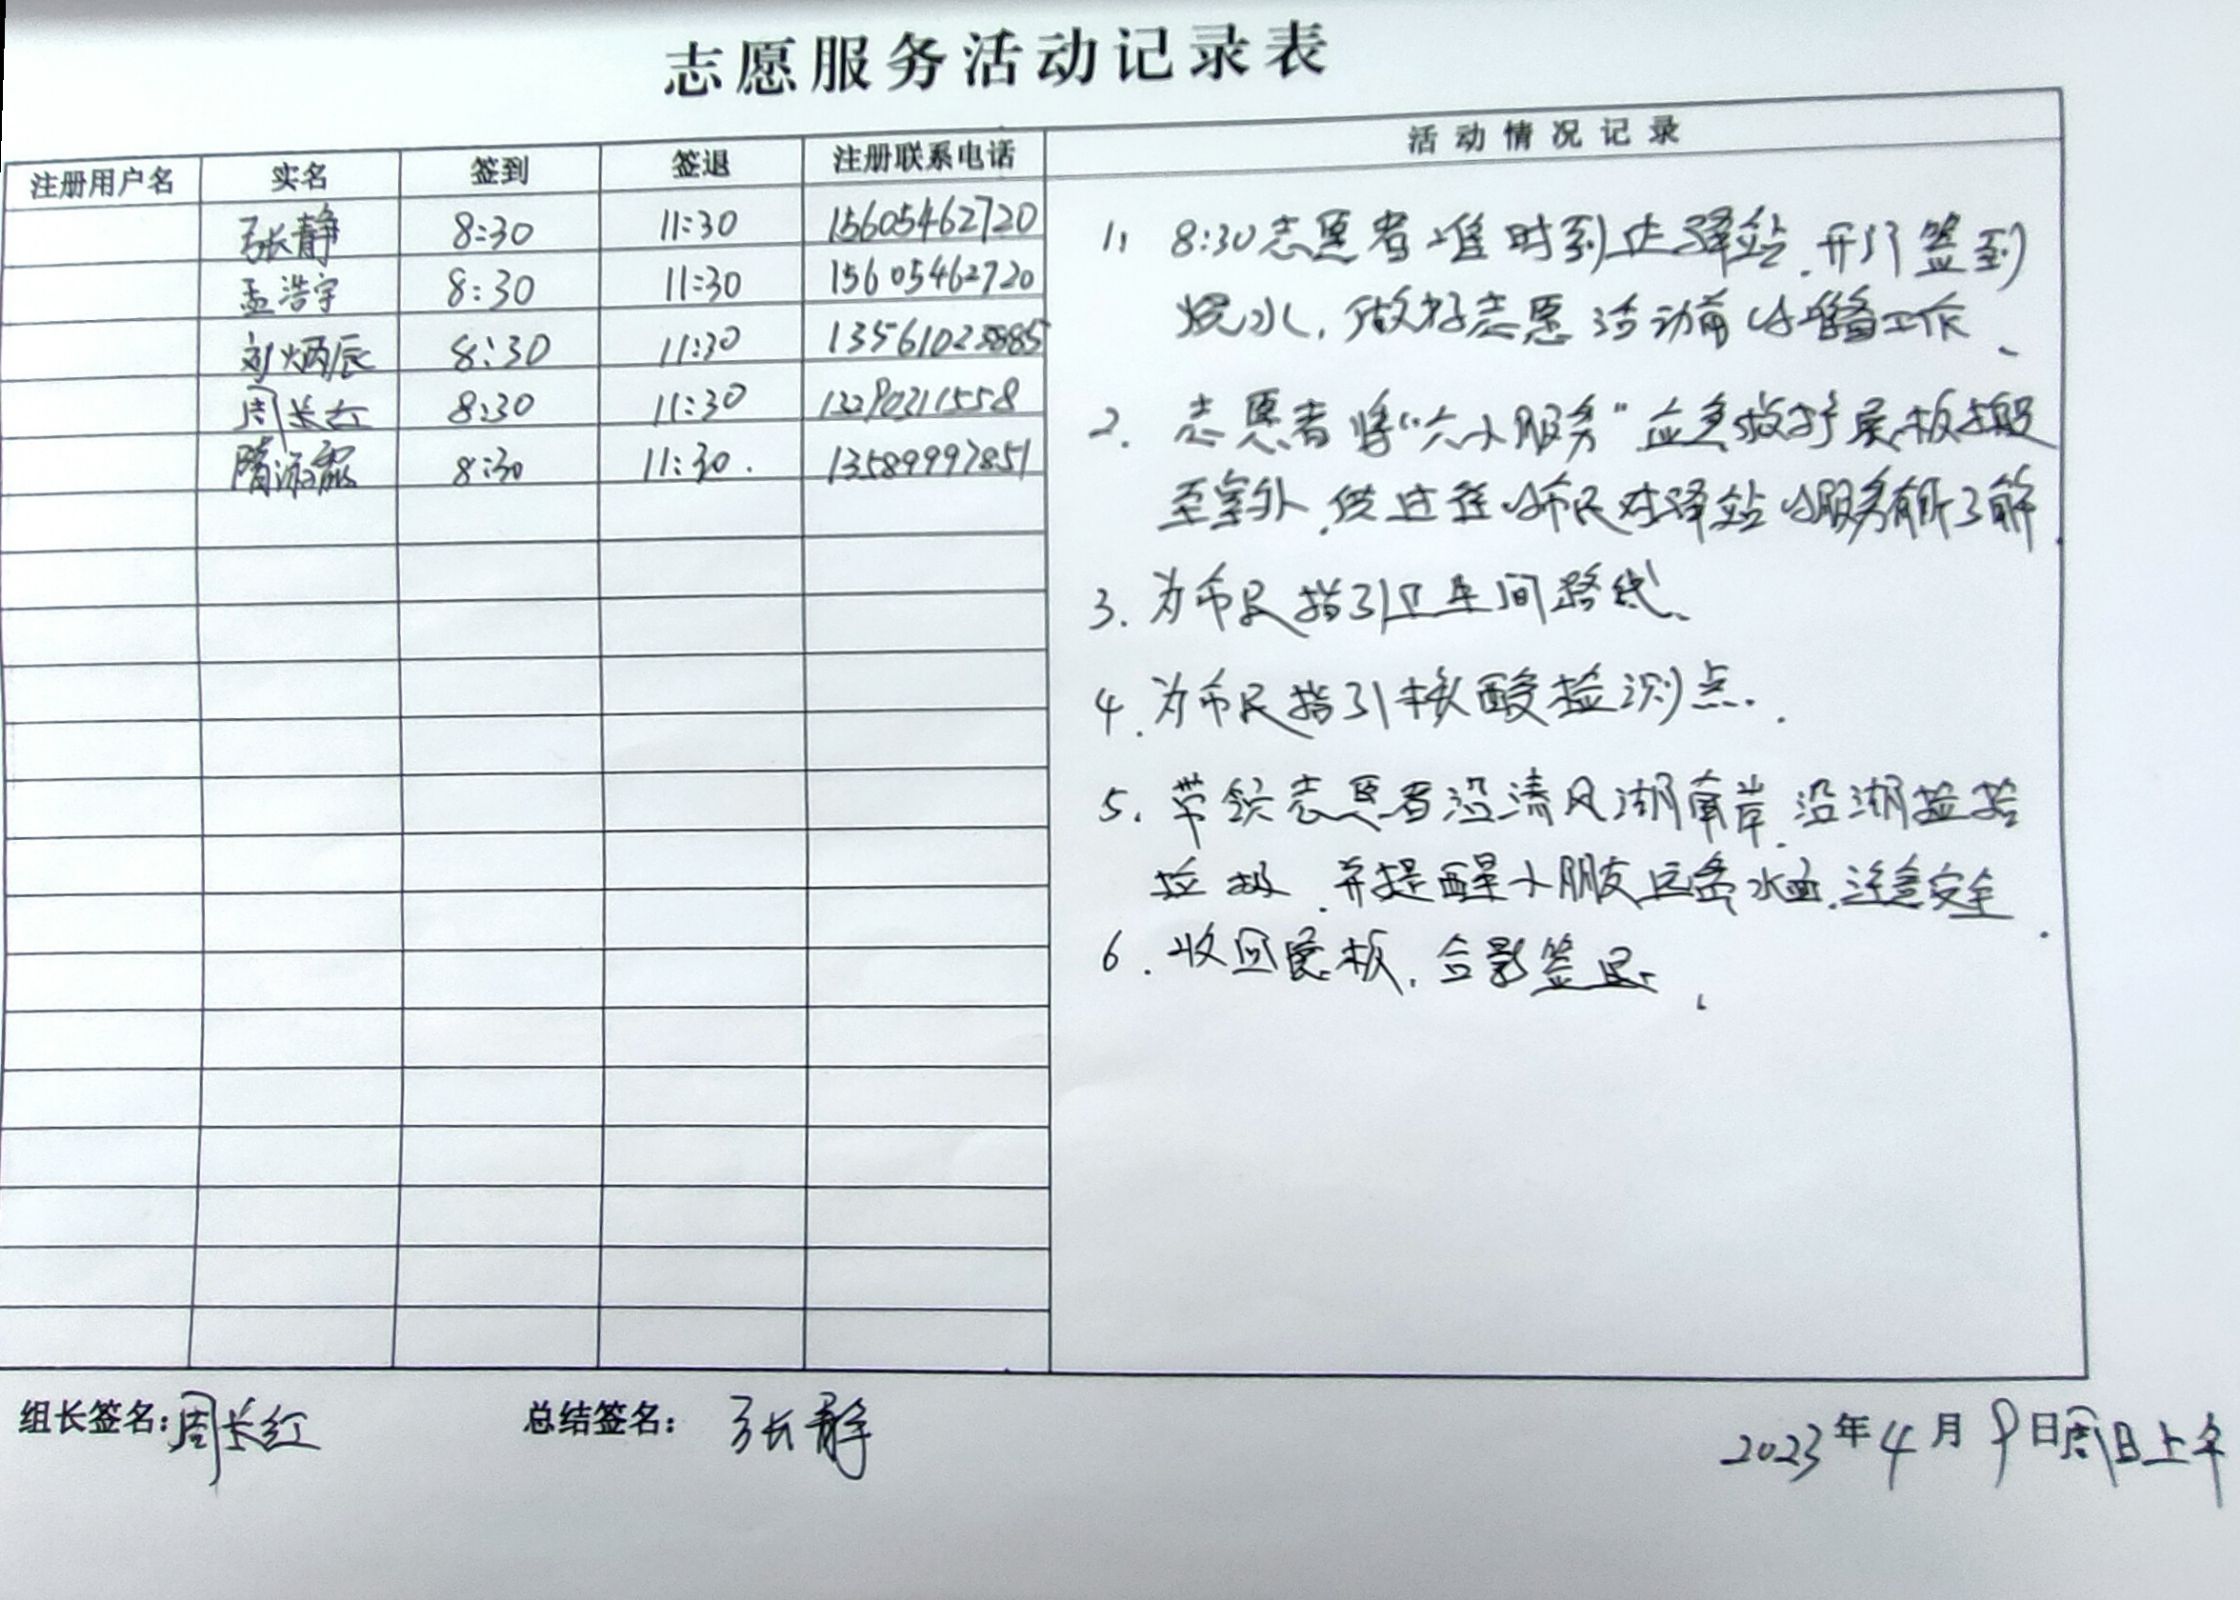 志愿服务活动记录表
注册用户名 实名 签到 签退 注册联系电话 活动情况记录
张静 8:30 11:30 15605462720
孟浩宇 8:30 11:30 15605462720
刘炳辰 8:30 11:30
周长红 8:30 11:30
隋 8:30 11:30. 13589997851
1, 8:30志愿者准时到达驿站,开门签到
烧水,做好志愿活动前的准备工作、
2. 志愿者将“六小服务”应急救护展板搬
至室外,供过往的市民对驿站的服务有所了解.
3. 为市民指引卫生间路线、
4. 为市民指引核酸检测点.
5. 带领志愿者沿清风湖南岸,沿湖捡拾
垃圾,并提醒小朋友远离水面,注意安全.
6. 收回展板,合影签退、
组长签名:周长红 总结签名: 张静 2023年4月9日周日上午